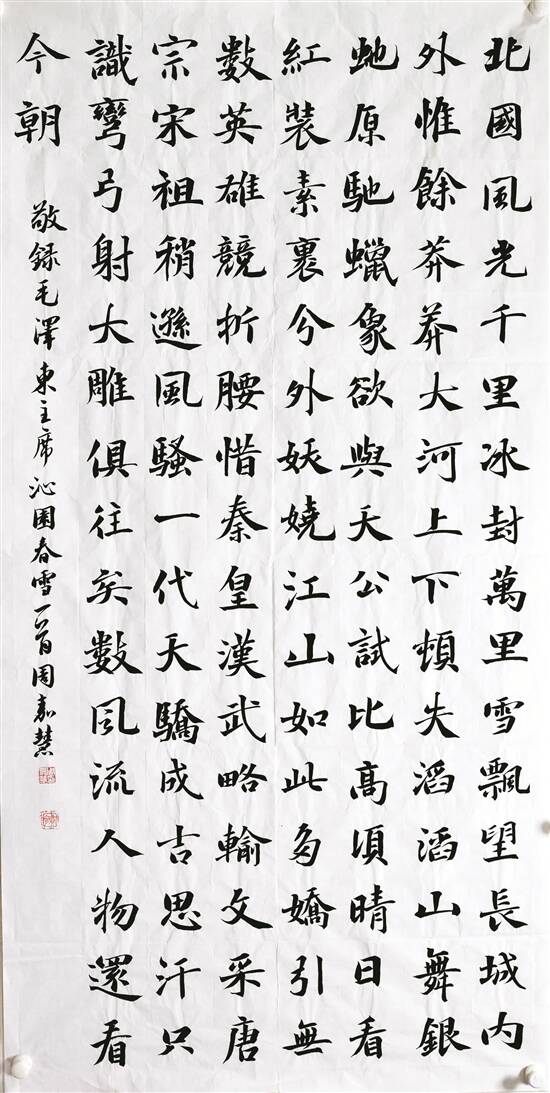 北國風光千里冰封萬里雪飄望長城內
外惟餘莽莽大河上下頓失滔滔山舞銀
虵原馳蠟象欲與天公試比高須晴日看
紅裝素裹分外妖嬈江山如此多嬌引無
數英雄競折腰惜秦皇漢武略輸文采唐
宗宋祖稍遜風騷一代天驕成吉思汗只
識彎弓射大雕俱往矣數風流人物還看
今朝
敬録毛澤東主席沁園春雪一首周嘉慧